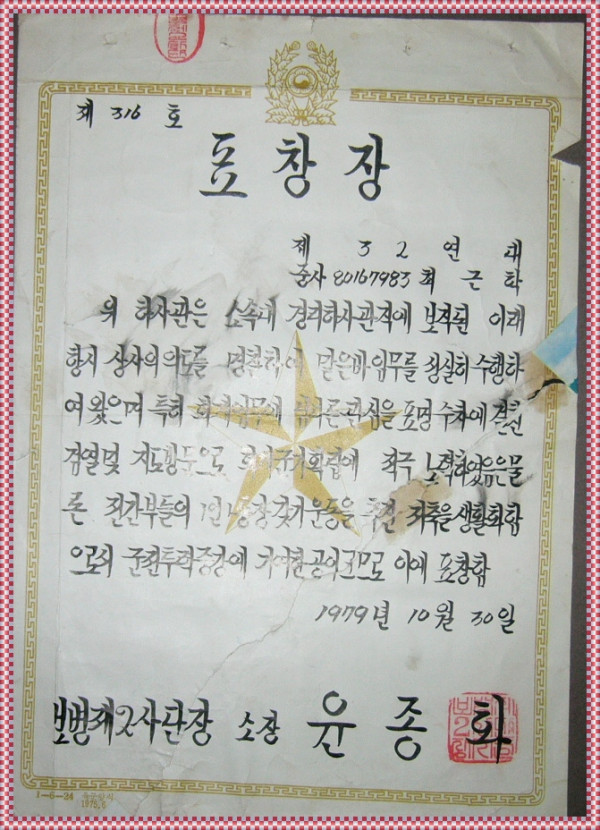 제 316 호
표창장
제 32 연 대
중사 80167983 최 근 하
위 하사관은 소속대 경리하사관직에 보직된 이래
항시 상사의 의도를 명찰하여 맡은바 임무를 성실히 수행하
여 왔으며 특히 관심을 표명 수차에 걸친
검열및 지도방문으로 적극 노력하였음은물
론 전간부들의 1인 통장 갖기 운동을 추진 저축을 생활화함
으로써 군전투력증강에 기여한 공이 크므로 이에 표창함
1979년 10월 30일
보병제2사단장 소장 윤 종 화
1-6-24
1979.5